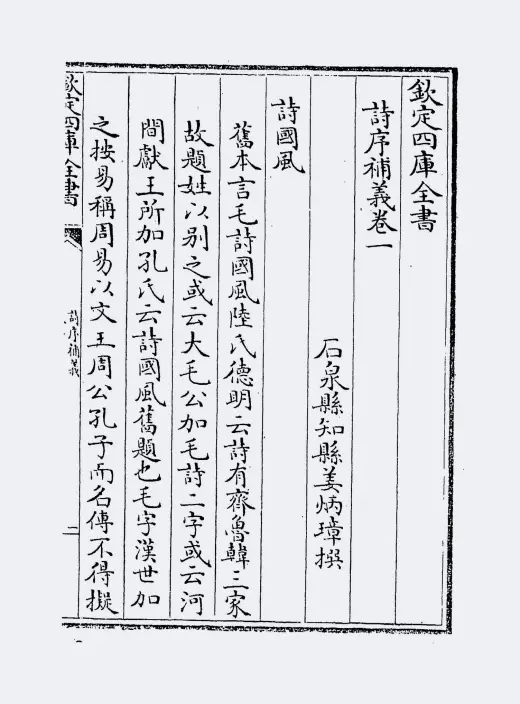 欽定四庫全書
詩序補義卷一
石泉縣知縣姜炳璋撰
詩國風
舊本言毛詩國風陸氏德明云詩有齊魯韓三家
故題姓以別之或云大毛公加毛詩二字或云河
間獻王所加孔氏云詩國風舊題也毛字漢世加
之按易稱周易以文王周公孔子而名傳不得擬
欽定四庫全書
詩序補義